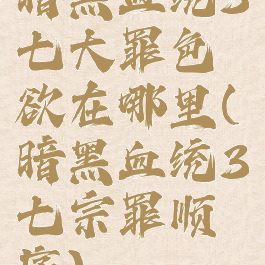 暗黑血统3
七大罪色
欲在哪里(
暗黑血统3
七宗罪顺
序)